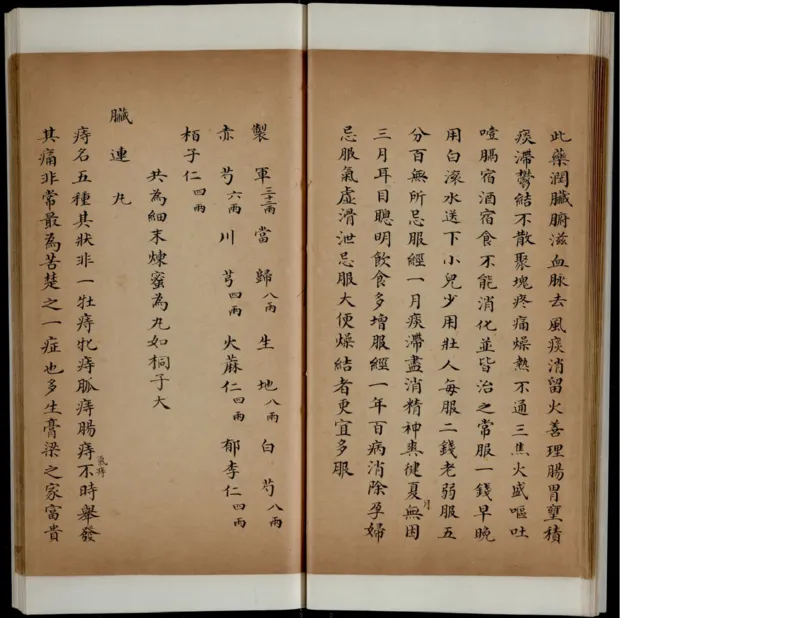 此藥潤臟腑滋血脉去風痰消留火善理腸胃壅積
痰滯鬱結不散聚塊疼痛燥熱不通三焦火盛嘔吐
噎膈宿酒宿食不能消化並皆治之常服一錢早晚
用白滾水送下小兒少用壯人每服二錢老弱服五
分百無所忌服經一月痰滯盡消精神爽健夏月無因
三月耳目聰明飲食多增服經一年百病消除孕婦
忌服氣虛滑泄忌服大便燥結者更宜多服
製軍三十二兩 當歸八兩 生地八兩 白芍八兩
赤芍六兩 川芎四兩 火蔴仁四兩 郁李仁四兩
栢子仁四兩
共為細末煉蜜為丸如桐子大
臟連丸
痔名五種其狀非一牡痔牝痔脈痔腸痔氣痔不時舉發
其痛非常最為苦楚之一症也多生膏梁之家富貴